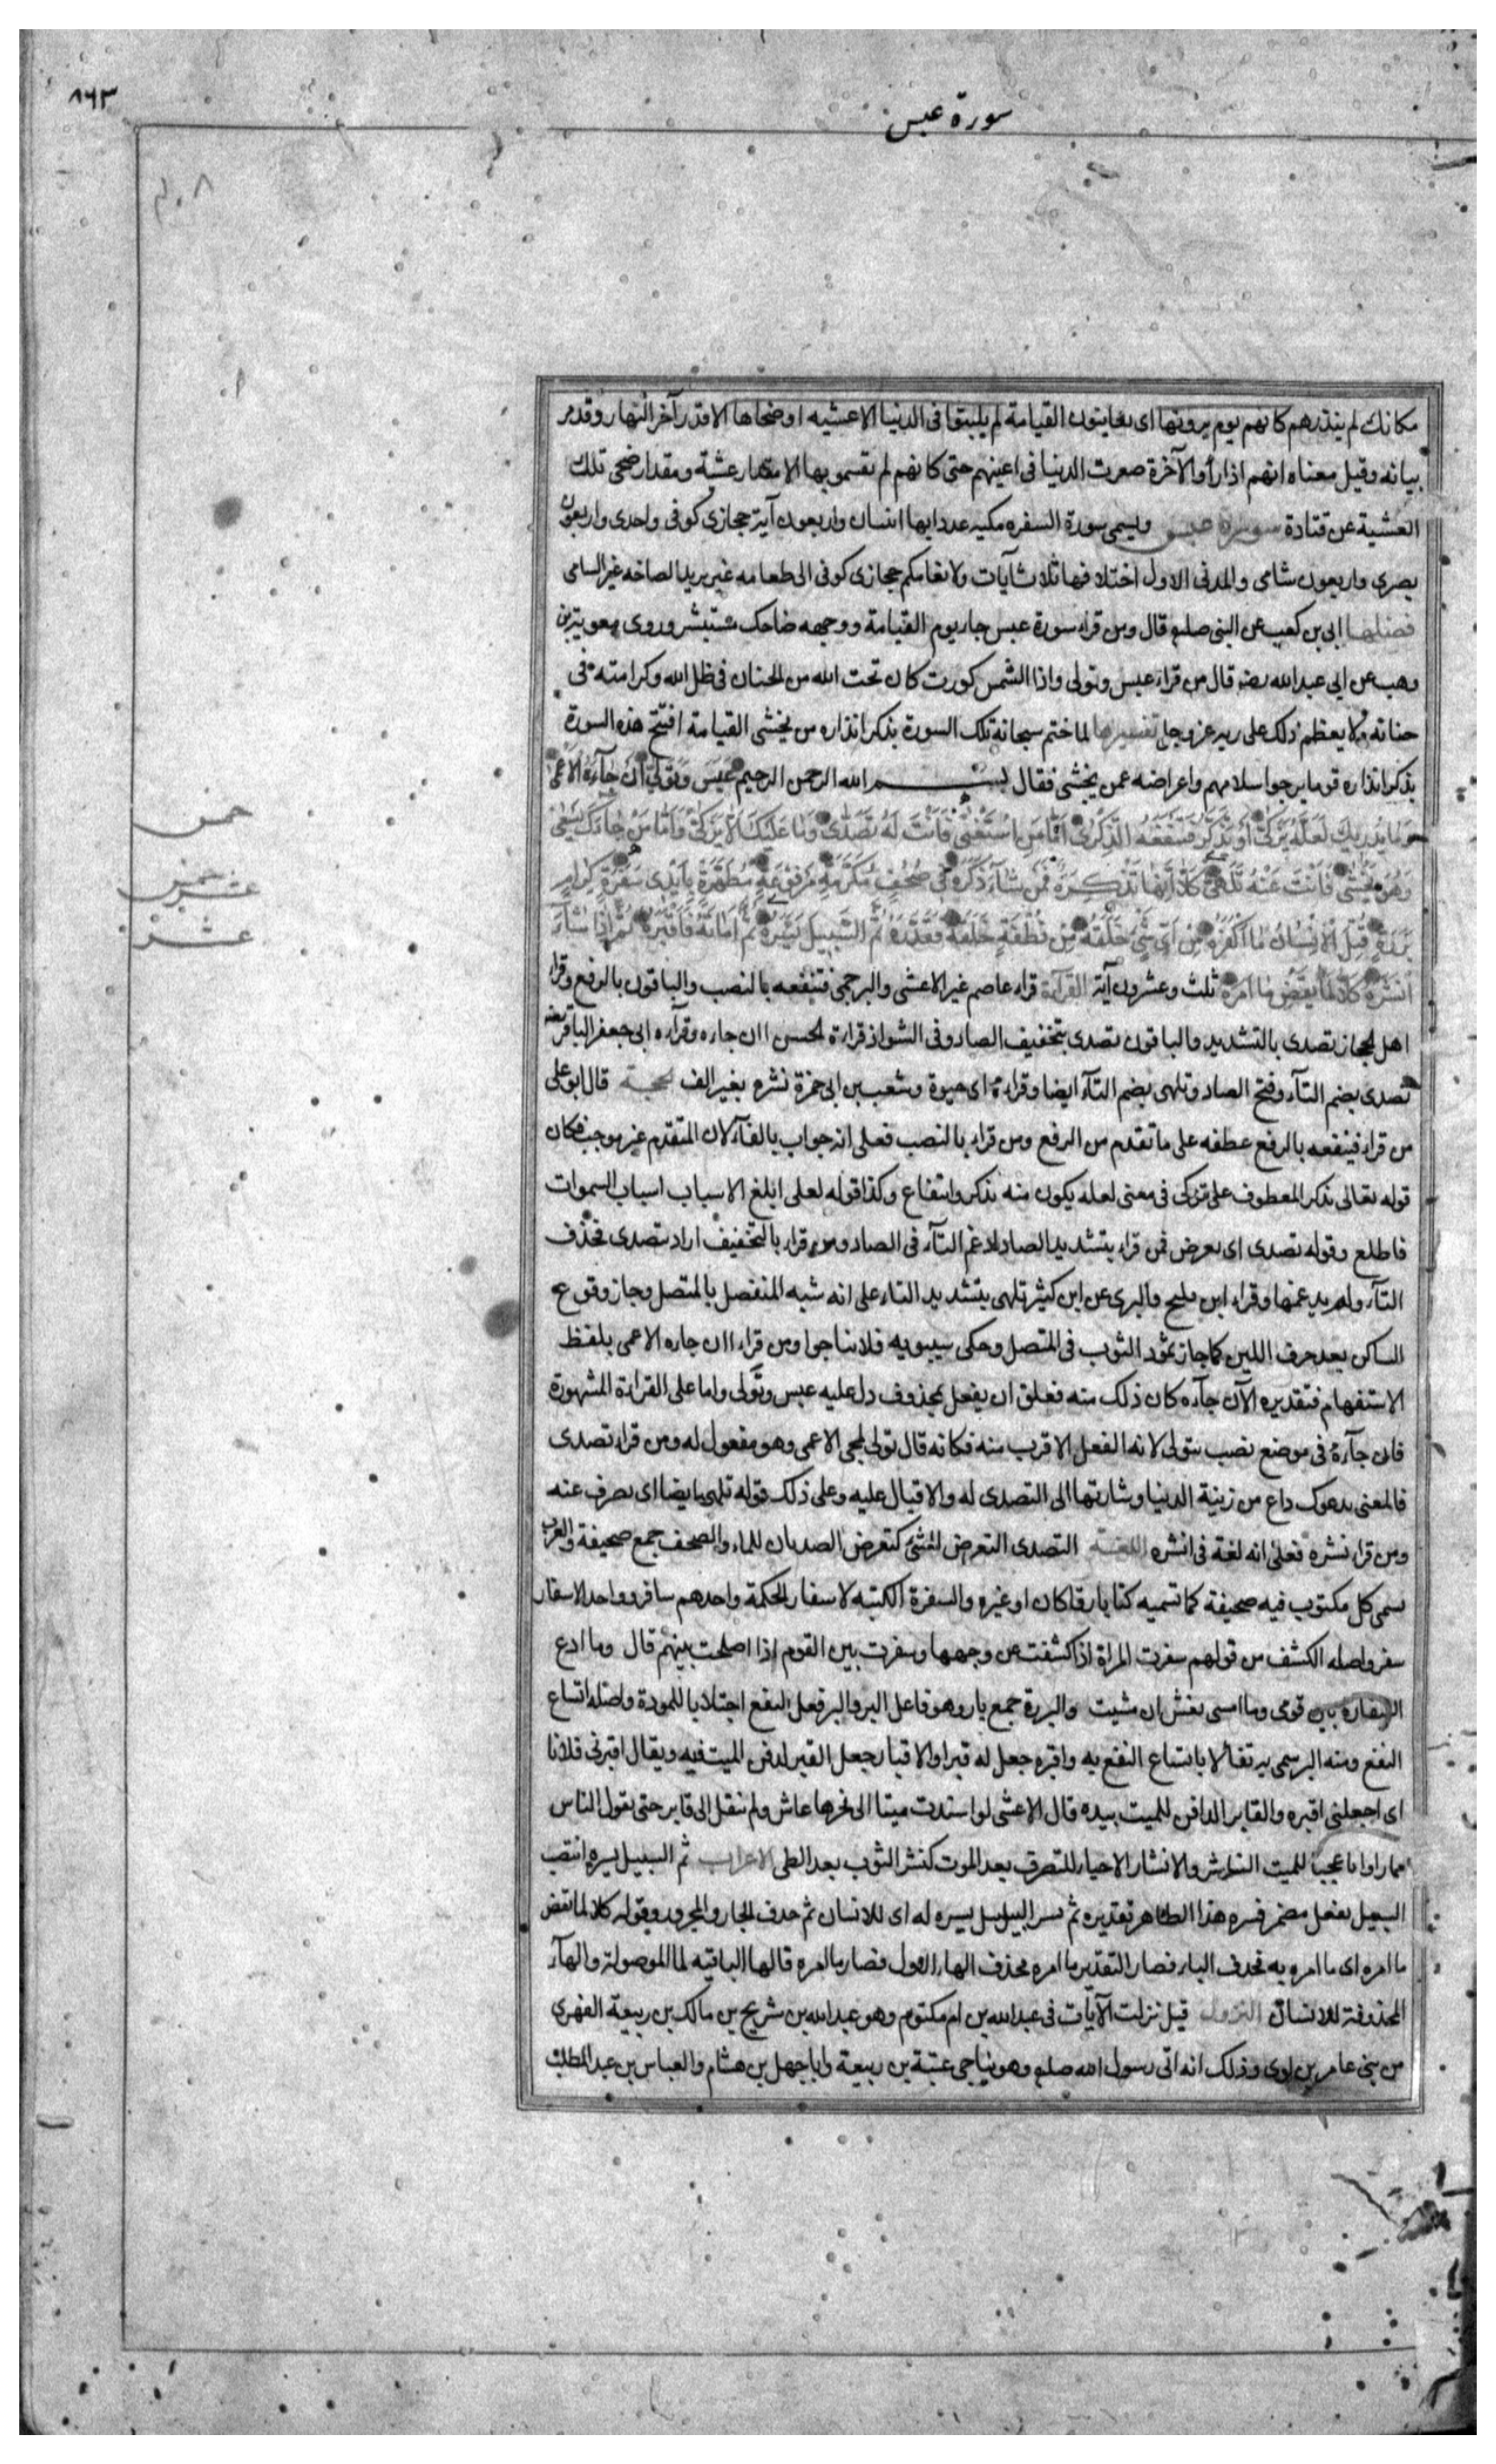 ٨٦٣
سورة عبس
مكانك لم ينذرهم كانهم يوم يرونها اى يعاينون القيامة لم يلبثوا فى الدنيا الا عشيه او ضحاها الا قدر آخر النهار وقدمر
بيانه وقيل معناه انهم اذا رأوا الآخرة صغرت الدنيا فى اعينهم حتى كانهم لم يقسموا بها الا مقدار عشية ومقدار ضحى تلك
العشية عن قتادة سورة عبس ويسمى سورة السفره مكيه عدد ايها اثنان واربعون آية حجازى كوفى واحدى واربعون
بصرى واربعون شامى والمدنى الاول اختلافها ثلاث آيات ولانعامكم حجازى كوفى الى طعامه غير يزيد الصاخه غير الشامى
فضلها ابى بن كعب عن النبى صلعم قال ومن قراء سورة عبس جاء يوم القيامة ووجهه ضاحك مستبشر وروى معوية بن
وهب عن ابى عبد الله رضه قال من قراء عبس وتولى واذا الشمس كورت كان تحت الله من الجنان فى ظل الله وكرامته فى
جنانه ولا يعظم ذلك على ربه عز وجل تفسيرها لما ختم سبحانه تلك السورة بذكر انذاره من يخشى القيامة افتتح هذه السورة
بذكر انذاره قوما يرجوا سلامهم واعراضه عمن يخشى فقال بسم الله الرحمن الرحيم عَبَسَ وَتَوَلّىٰ اَنْ جَآءَهُ الْاَعْمىٰ
وَمَا يُدْرِيكَ لَعَلَّهُ يَزَّكّىٰ اَوْ يَذَّكَّرُ فَتَنْفَعَهُ الذِّكْرىٰ اَمَّا مَنِ اسْتَغْنىٰ فَاَنْتَ لَهُ تَصَدّىٰ وَمَا عَلَيْكَ اَلَّا يَزَّكّىٰ وَاَمَّا مَنْ جَاءَكَ يَسْعىٰ
وَهُوَ يَخْشىٰ فَاَنْتَ عَنْهُ تَلَهّىٰ كَلَّا اِنَّهَا تَذْكِرَةٌ فَمَنْ شَآءَ ذَكَرَهُ فِى صُحُفٍ مُكَرَّمَةٍ مَرْفُوعَةٍ مُطَهَّرَةٍ بِاَيْدِى سَفَرَةٍ كِرَامٍ
بَرَرَةٍ قُتِلَ الْاِنْسَانُ مَا اَكْفَرَهُ مِنْ اَىِّ شَىْءٍ خَلَقَهُ مِنْ نُطْفَةٍ خَلَقَهُ فَقَدَّرَهُ ثُمَّ السَّبِيلَ يَسَّرَهُ ثُمَّ اَمَاتَهُ فَاَقْبَرَهُ ثُمَّ اِذَا شَآءَ
اَنْشَرَهُ كَلَّا لَمَّا يَقْضِ مَا اَمَرَهُ ثلث وعشرون آية القرآءة قراء عاصم غير الاعشى والبرجمى فتنفعه بالنصب والباقون بالرفع وقراء
اهل الحجاز تصدى بالتشديد والباقون تصدى بتخفيف الصاد وفى الشواذ قراءة الحسن اان جاءه وقرآءه ابى جعفر الباقر رضه
تصدى بضم التآء وفتح الصاد وتلهى بضم التآء ايضا وقراءة ابى حيوة وشعيب بن ابى حمزة نشره بغير الف الحجة قال ابو على
من قراء فينفعه بالرفع عطفه على ما تقدم من الرفع ومن قراء بالنصب فعلى انه جواب بالفآء لان المتقدم غير موجب فكان
قوله تعالى يذكر المعطوف على تزكى فى معنى لعله يكون منه تذكر وانتفاع وكذا قوله لعلى ابلغ الاسباب اسباب السموات
فاطلع وقوله تصدى اى تعرض فمن قراء بتشديد الصاد ادغم التآء فى الصاد ومن قراء بالتخفيف اراد تتصدى فحذف
التآء ولم يدغمها وقراء ابن مليح والبزى عن ابن كثير تلهى بتشديد التاء على انه شبه المنفصل بالمتصل وجاز وقوع
الساكن بعد حرف اللين كما جاز تمود الثوب فى المتصل وحكى سيبويه فلا تناجوا ومن قراء اان جاءه الاعمى بلفظ
الاستفهام فتقديره الآن جآءه كان ذلك منه فعلق ان بفعل محذوف دل عليه عبس وتولى واما على القراءة المشهورة
فان جآءه فى موضع نصب بتولى لانه الفعل الاقرب منه فكانه قال تولى لمجى الاعمى وهو مفعول له ومن قراء تصدى
فالمعنى يدعوك داع من زينة الدنيا وشارتها الى التصدى له والاقبال عليه وعلى ذلك قوله تلهى ايضا اى تصرف عنه
ومن قراء نشره فعلى انه لغة فى انشره اللغة التصدى التعرض للشئ كتعرض الصديان للماء والصحف جمع صحيفة والعرب
تسمى كل مكتوب فيه صحيفة كما تسميه كتابا رقا كان او غيره والسفرة الكتبه لاسفار الحكمة واحدهم سافر وواحد الاسفار
سفر واصله الكشف من قولهم سفرت المراة اذا كشفت عن وجهها وسفرت بين القوم اذا اصلحت بينهم قال وما ادع
السفارة بين قومى وما امسى بغش ان مشيت والبررة جمع بار وهو فاعل البر والبر فعل النفع اجتلابا للمودة واصله اتساع
النفع ومنه البر سمى بر تفألا باتساع النفع به واقبره جعل له قبرا والاقبار جعل القبر لدفن الميت فيه ويقال اقبرنى فلانا
اى اجعلنى اقبره والقابر الدافن للميت بيده قال الاعشى لو اسندت ميتا الى نحرها عاش ولم ينقل الى قابر حتى يقول الناس
مما راوا يا عجبا للميت الناشر والانشار الاحياء للتصرف بعد الموت كنشر الثوب بعد الطى الاعراب ثم السبيل يسره انتصب
السبيل بفعل مضمر فسره هذا الظاهر تقديره ثم يسر السبيل يسره له اى للانسان ثم حذف الجار والمجرور وقوله كلا لما يقض
ما امره اى ما امره به فحذف الباء فصار التقدير ما امره فحذف الهاء الاول فصار ما امره فالهاء الباقيه لما الموصولة والهآء
المحذوفة للانسان النزول قيل نزلت الآيات فى عبد الله بن ام مكتوم وهو عبد الله بن شريح بن مالك بن ربيعة الفهرى
من بنى عامر بن لوى وذلك انه اتى رسول الله صلعم وهو يناجى عتبة بن ربيعة وابا جهل بن هشام والعباس بن عبد المطلب
خمس
عشر